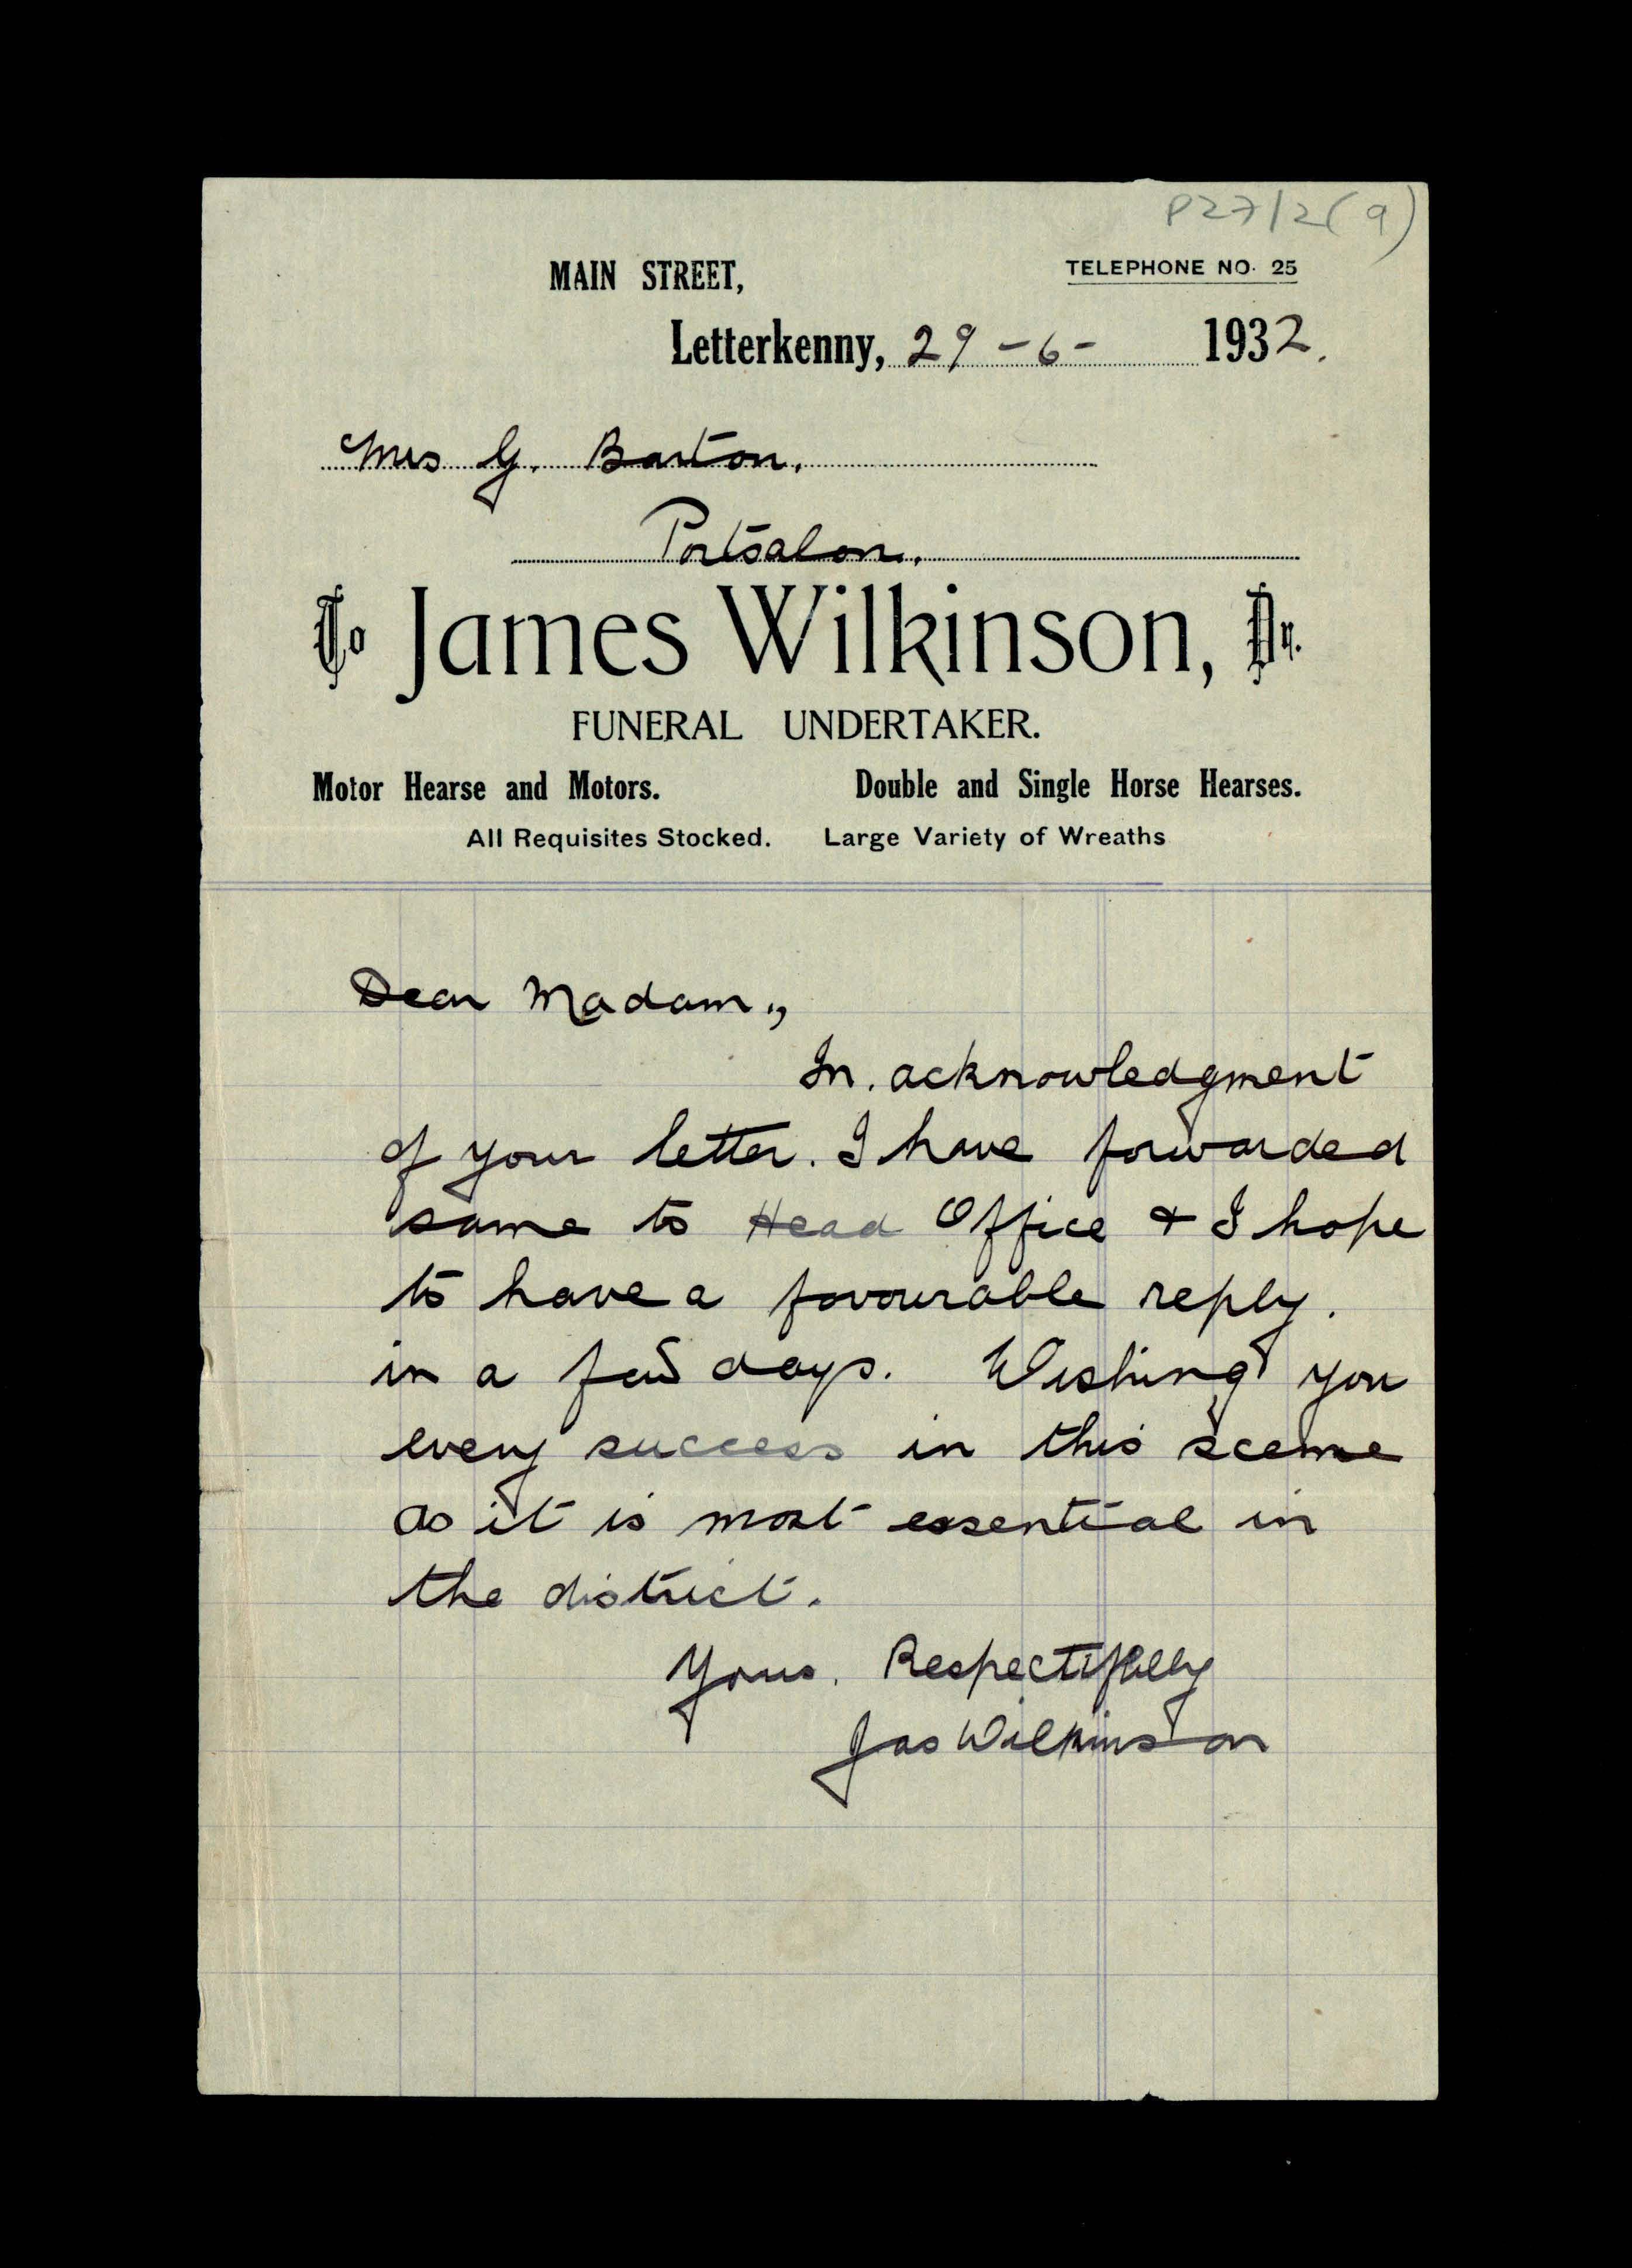 P27/2(9)
MAIN STREET,
TELEPHONE NO. 25
Letterkenny, 29-6- 1932.
Mrs G. Barton.
Portsalon.
To James Wilkinson, Dr.
FUNERAL UNDERTAKER.
Motor Hearse and Motors. Double and Single Horse Hearses.
All Requisites Stocked. Large Variety of Wreaths
Dear Madam.,
In. acknowledgment
of your letter. I have forwarded
same to Head Office & I hope
to have a favourable reply.
in a few days. Wishing you
every success in this sceme
as it is most essential in
the district.
Yours. Respectifully
Jas Wilkinson